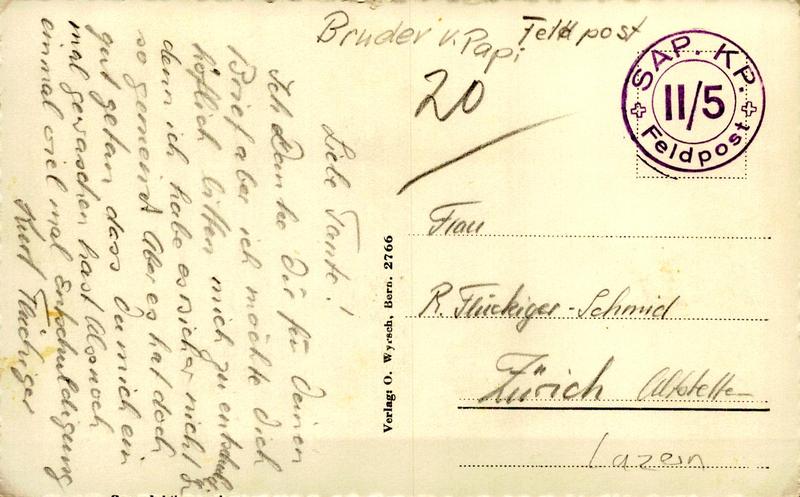 Bruder v. Papi
Feldpost
20
SAP. KP.
II/5
Feldpost
Liebe Tante!
Ich danke Dir für Deinen
Brief aber ich möchte Dich
höflich bitten mich zu entschuldi
denn ich habe es sicher nicht
so gemeint Aber es hat doch
gut getan dass Du mich ein
mal gewaschen hast Also noch
einmal viel mal Entschuldigung
Kurt Flückiger
Verlag: O. Wyrsch, Bern. 2766
Frau
R. Flückiger-Schmid
Zürich Altstetten
Luzern